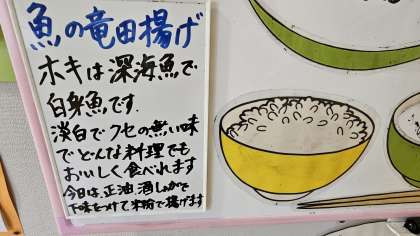 魚の竜田揚げ
ホキは深海魚で
白身魚です.
淡白でクセの無い味
でどんな料理でも
おいしく食べれます
今日は、正油、酒、しょうがで
下味をつけて米粉で揚げます